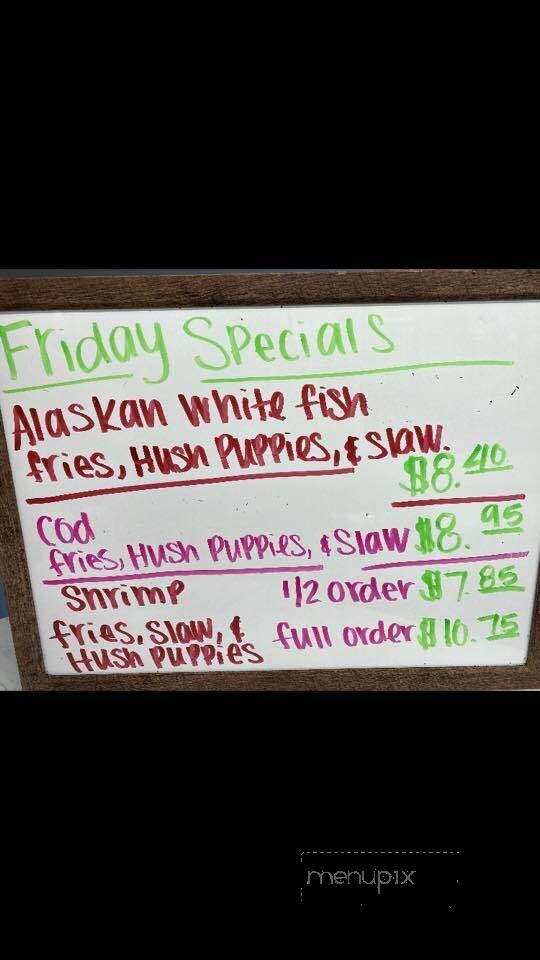 Friday Specials
Alaskan White fish
fries, Hush Puppies, & Slaw.
$8.40
Cod
fries, Hush Puppies, & Slaw $8.95
Shrimp 1/2 order $7.85
fries, Slaw, & full order $10.75
Hush Puppies
menupix